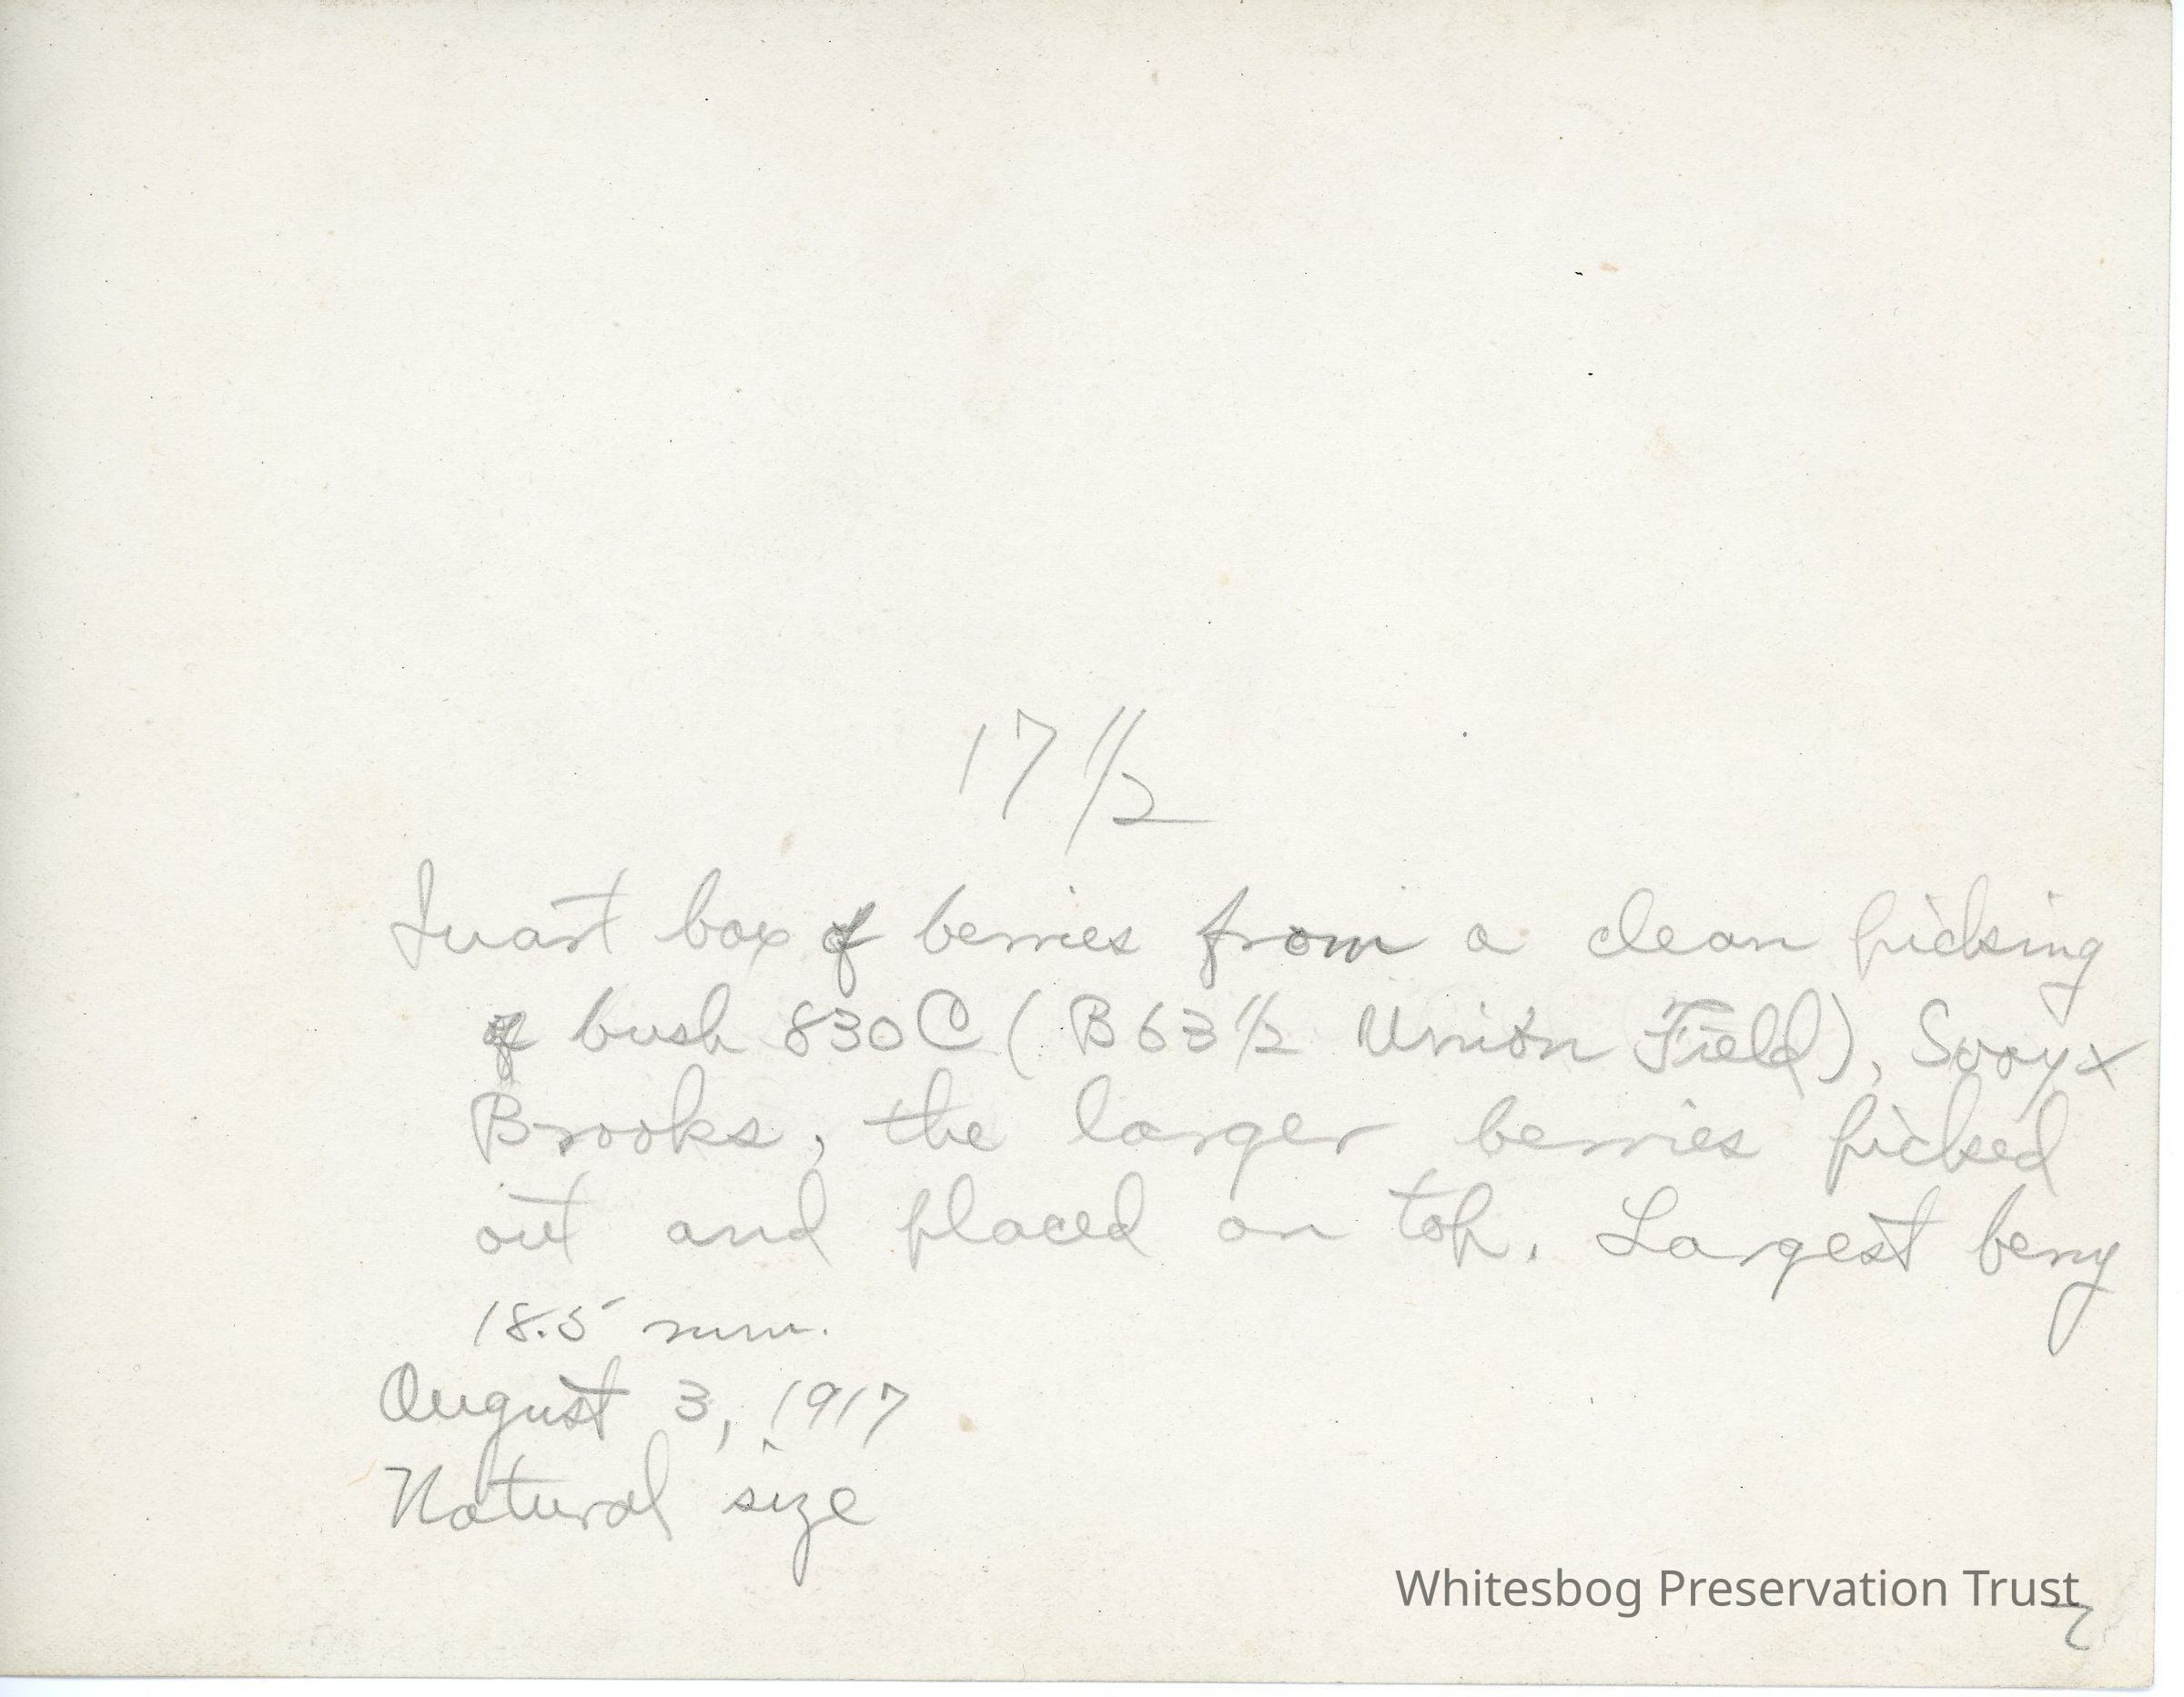 17 1/2
Quart box of berries from a clean picking
of bush 830C (B63 1/2 Union Field), Sooy x
Brooks, the larger berries picked
out and placed on top. Largest berry
18.5 mm.
August 3, 1917
Natural size
Whitesbog Preservation Trust